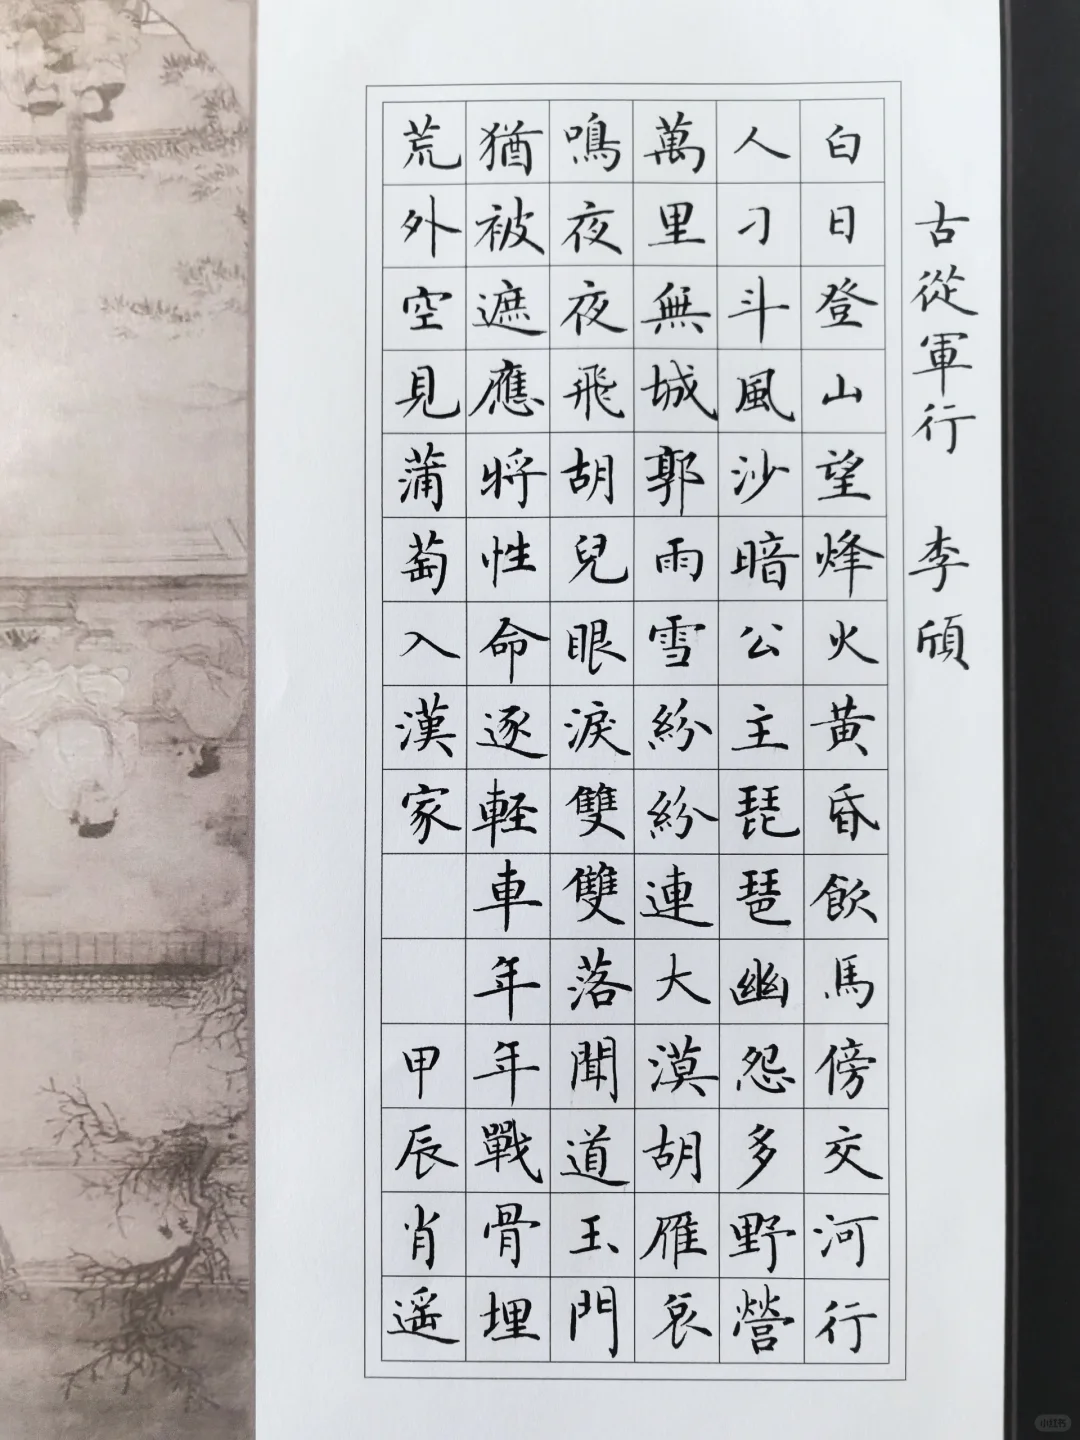 古從軍行 李頎
白日登山望烽火黃昏飲馬傍交河行
人刁斗風沙暗公主琵琶幽怨多野營
萬里無城郭雨雪紛紛連大漠胡雁哀
鳴夜夜飛胡兒眼淚雙雙落聞道玉門
猶被遮應將性命逐軽車年年戰骨埋
荒外空見蒲萄入漢家 甲辰肖遥
小红书